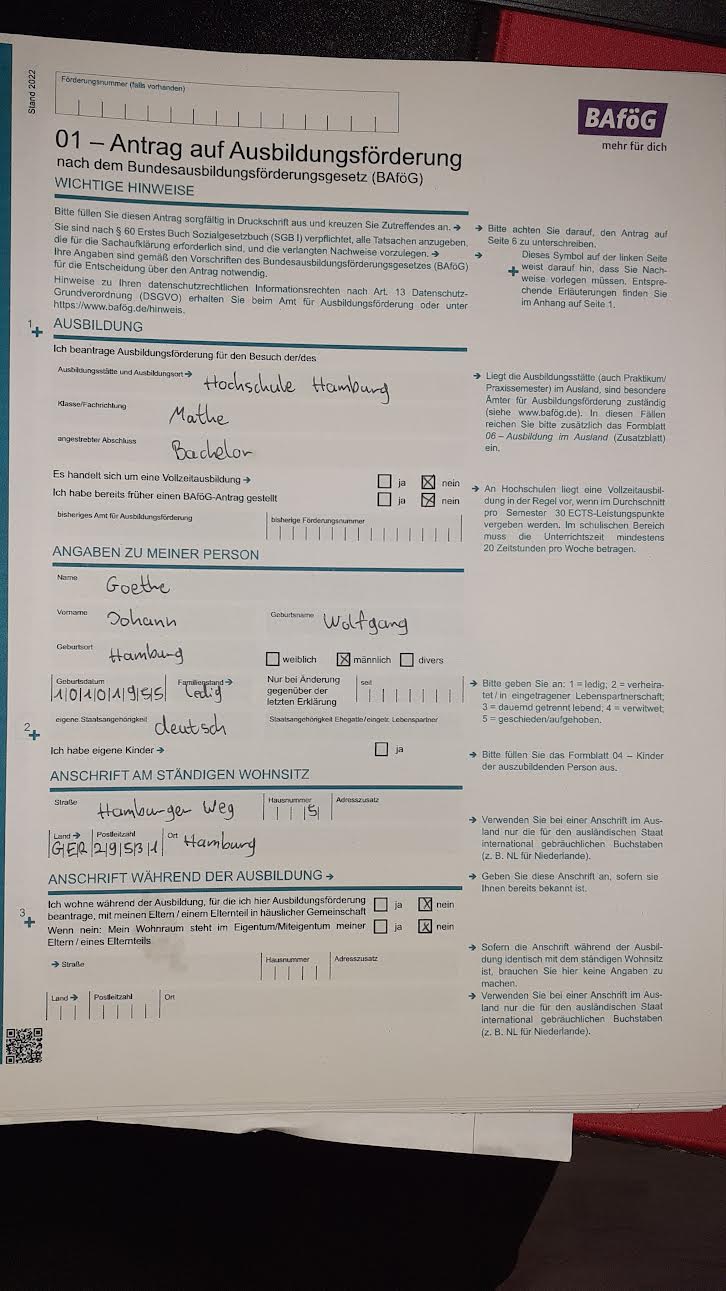 Stand 2022
Förderungsnummer (falls vorhanden)
BAföG
mehr für dich
01 – Antrag auf Ausbildungsförderung
nach dem Bundesausbildungsförderungsgesetz (BAföG)
WICHTIGE HINWEISE
Bitte füllen Sie diesen Antrag sorgfältig in Druckschrift aus und kreuzen Sie Zutreffendes an. →
Sie sind nach § 60 Erstes Buch Sozialgesetzbuch (SGB I) verpflichtet, alle Tatsachen anzugeben,
die für die Sachaufklärung erforderlich sind, und die verlangten Nachweise vorzulegen. →
Ihre Angaben sind gemäß den Vorschriften des Bundesausbildungsförderungsgesetzes (BAföG)
für die Entscheidung über den Antrag notwendig.
Hinweise zu Ihren datenschutzrechtlichen Informationsrechten nach Art. 13 Datenschutz-
Grundverordnung (DSGVO) erhalten Sie beim Amt für Ausbildungsförderung oder unter
https://www.bafög.de/hinweis.
→ Bitte achten Sie darauf, den Antrag auf
Seite 6 zu unterschreiben.
→ Dieses Symbol auf der linken Seite
+ weist darauf hin, dass Sie Nach-
weise vorlegen müssen. Entspre-
chende Erläuterungen finden Sie
im Anhang auf Seite 1.
1+ AUSBILDUNG
Ich beantrage Ausbildungsförderung für den Besuch der/des
Ausbildungsstätte und Ausbildungsort → Hochschule Hamburg
Klasse/Fachrichtung Mathe
angestrebter Abschluss Bachelor
→ Liegt die Ausbildungsstätte (auch Praktikum/
Praxissemester) im Ausland, sind besondere
Ämter für Ausbildungsförderung zuständig
(siehe www.bafög.de). In diesen Fällen
reichen Sie bitte zusätzlich das Formblatt
06 – Ausbildung im Ausland (Zusatzblatt)
ein.
Es handelt sich um eine Vollzeitausbildung → ☐ ja ☒ nein
Ich habe bereits früher einen BAföG-Antrag gestellt ☐ ja ☒ nein
bisheriges Amt für Ausbildungsförderung bisherige Förderungsnummer
→ An Hochschulen liegt eine Vollzeitausbil-
dung in der Regel vor, wenn im Durchschnitt
pro Semester 30 ECTS-Leistungspunkte
vergeben werden. Im schulischen Bereich
muss die Unterrichtszeit mindestens
20 Zeitstunden pro Woche betragen.
ANGABEN ZU MEINER PERSON
Name Goethe
Vorname Johann Geburtsname Wolfgang
Geburtsort Hamburg ☐ weiblich ☒ männlich ☐ divers
Geburtsdatum 10101955 Familienstand → ledig Nur bei Änderung gegenüber der letzten Erklärung seit
→ Bitte geben Sie an: 1 = ledig; 2 = verheira-
tet / in eingetragener Lebenspartnerschaft;
3 = dauernd getrennt lebend; 4 = verwitwet;
5 = geschieden/aufgehoben.
2+ eigene Staatsangehörigkeit deutsch Staatsangehörigkeit Ehegatte/eingetr. Lebenspartner
Ich habe eigene Kinder → ☐ ja
→ Bitte füllen Sie das Formblatt 04 – Kinder
der auszubildenden Person aus.
ANSCHRIFT AM STÄNDIGEN WOHNSITZ
Straße Hamburger Weg Hausnummer 5 Adresszusatz
Land → GER Postleitzahl 29531 Ort Hamburg
→ Verwenden Sie bei einer Anschrift im Aus-
land nur die für den ausländischen Staat
international gebräuchlichen Buchstaben
(z. B. NL für Niederlande).
ANSCHRIFT WÄHREND DER AUSBILDUNG →
→ Geben Sie diese Anschrift an, sofern sie
Ihnen bereits bekannt ist.
3+ Ich wohne während der Ausbildung, für die ich hier Ausbildungsförderung
beantrage, mit meinen Eltern / einem Elternteil in häuslicher Gemeinschaft ☐ ja ☒ nein
Wenn nein: Mein Wohnraum steht im Eigentum/Miteigentum meiner
Eltern / eines Elternteils ☐ ja ☒ nein
→ Straße Hausnummer Adresszusatz
Land → Postleitzahl Ort
→ Sofern die Anschrift während der Ausbil-
dung identisch mit dem ständigen Wohnsitz
ist, brauchen Sie hier keine Angaben zu
machen.
→ Verwenden Sie bei einer Anschrift im Aus-
land nur die für den ausländischen Staat
international gebräuchlichen Buchstaben
(z. B. NL für Niederlande).